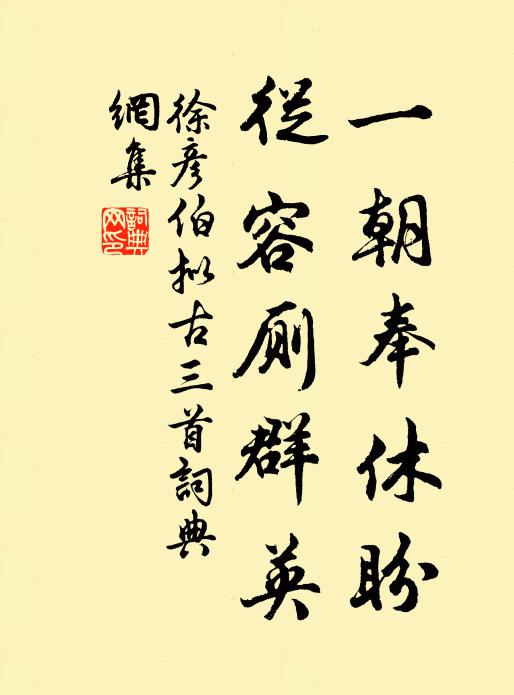 一朝奉休盼
從容厠群英
徐彦伯拟古三首詞典
網集
詞典
网印